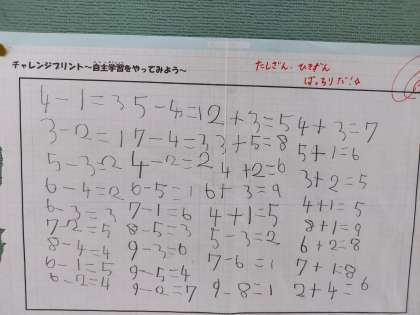 チャレンジプリント~自主学習をやってみよう~
たしざん、ひきざん
ばっちりだ!☆
4-1=3 5-4=1 2+3=5 4+3=7
3-2=1 7-4=3 3+5=8 5+1=6
5-3=2 4-2=2 4+2=6 3+2=5
6-4=2 6-5=1 6+3=9 4+1=5
6-3=3 7-1=6 4+1=5 8+1=9
7-2=5 8-5=3 5-3=2 6+2=8
8-4=4 9-3=6 7-6=1 7+1=8
6-1=5 9-5=4 9-8=1 2+4=6
6-2=4 9-2=7